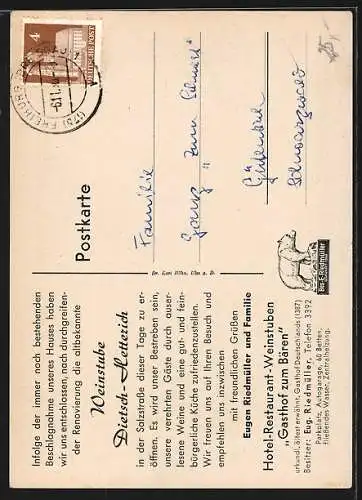 Infolge der immer noch bestehenden
Beschlagnahme unseres Hauses haben
wir uns entschlossen, nach durchgreifen-
der Renovierung die altbekannte
Weinstube
Dietsch-Hetterich
in der Salzstraße dieser Tage zu er-
öffnen. Es wird unser Bestreben sein,
unsere verehrten Gäste durch auser-
lesene Weine und eine gut- und fein-
bürgerliche Küche zufriedenzustellen
Wir freuen uns auf Ihren Besuch und
empfehlen uns inzwischen
mit freundlichen Grüßen
Eugen Riedmüller und Familie
Hotel-Restaurant-Weinstuben
„Gasthof zum Bären"
urkundl. ältesterwähnt. Gasthof Deutschlands (1387)
Besitzer: Eug. Riedmüller, Telefon 3392
Parkplatz, Autogarage, 60 Betten,
fließendes Wasser, Zentralheizung.
Dr. Karl Höhn, Ulm a. D.
Postkarte
4
DEUTSCHE POST
FREIBURG
Familie
Ganz "zum
Gütenbach
Schwarzwald
Bes. E. Riedmüller